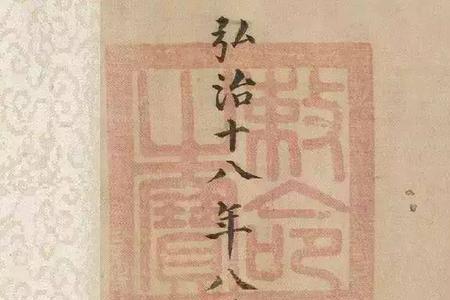 弘治十八年八
敕命之寶